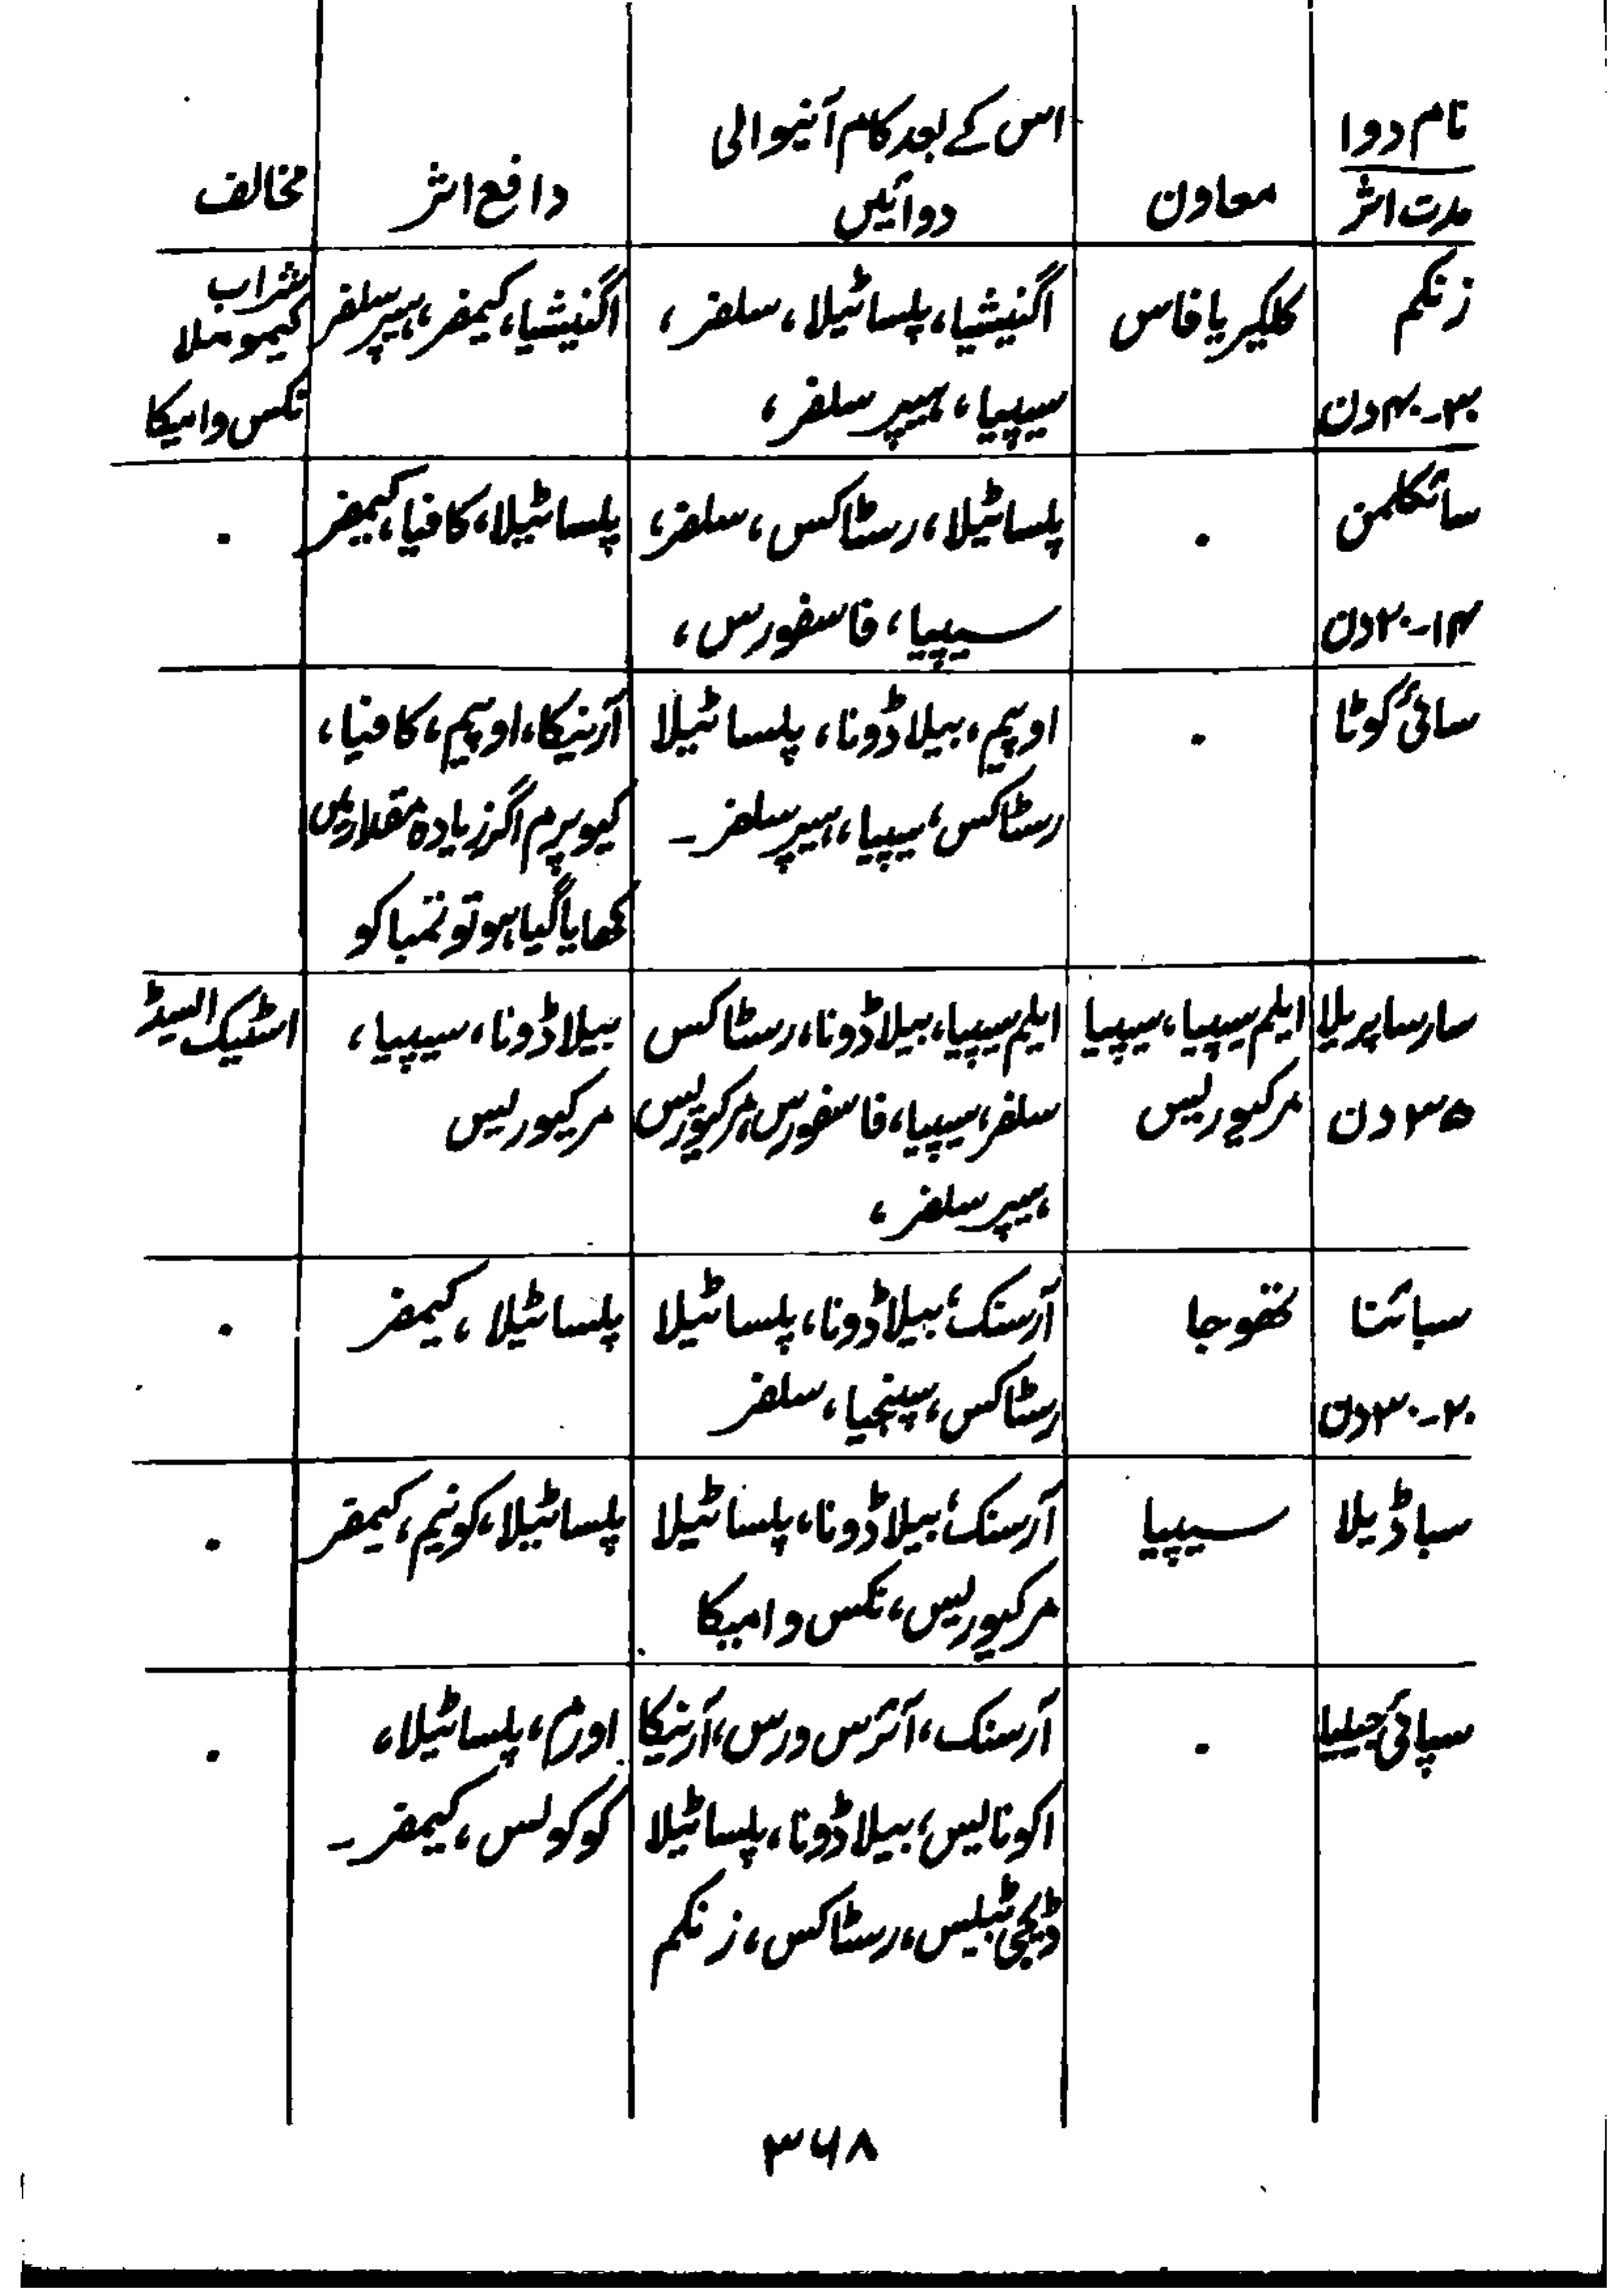 نام دوا
مدت اثر
معاون
اس کے بعد کام آنیوالی
دوائیں
دافع اثر
مخالف
زنکم
۳۰-۴۰ دن
کلکیریا فاس
اگنیشیا، پلساٹیلا، سلفر،
سیپیا، ہیپر سلفر،
اگنیشیا، کیمفر، ہیپر سلفر
شراب
کیمومیلا
نکس وامیکا
سائکلمن
۱۴-۲۰ دن
۰
پلساٹیلا، رسٹاکس، سلفر،
سیپیا، فاسفورس،
پلساٹیلا، کافیا، کیمفر
۰
سائی گوٹا
۰
اوپیم، بیلاڈونا، پلساٹیلا
رسٹاکس، سیپیا، ہیپر سلفر۔
آرنیکا، اوپیم، کافیا،
کیوپرم اگر زیادہ مقدار میں
کھایا گیا ہو تو تمباکو
سارساپریلا
۳۵ دن
ایلم سیپیا، سیپیا
مرکیوریس
ایلم سیپیا، بیلاڈونا، رسٹاکس
سلفر، سیپیا، فاسفورس، مرکیوریس
ہیپر سلفر،
بیلاڈونا، سیپیا،
مرکیوریس
اسٹیک ایسڈ
سبائنا
۲۰-۳۰ دن
تھوجا
آرسنک، بیلاڈونا، پلساٹیلا
رسٹاکس، سپنجیا، سلفر
پلساٹیلا، کیمفر
۰
سباڈیلا
سیپیا
آرسنک، بیلاڈونا، پلساٹیلا
مرکیوریس، نکس وامیکا
پلساٹیلا، کونیم، کیمفر
۰
سپائی جیلیا
۰
آرسنک، آئرس ورس، آرنیکا
اکونائیس، بیلاڈونا، پلساٹیلا
ڈیجی ٹیلیس، رسٹاکس، زنکم
اورم، پلساٹیلا،
کوکولس، کیمفر۔
۰
۳۶۸